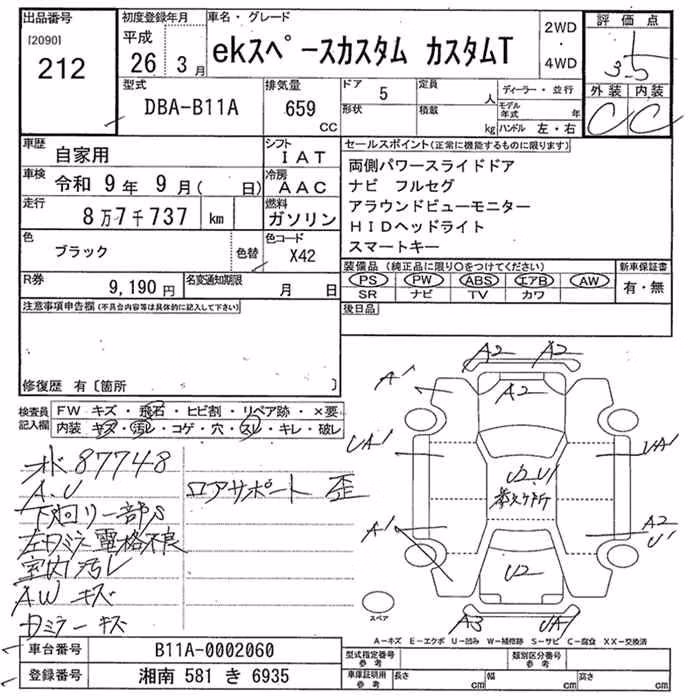 出品番号
[2090]
212
初度登録年月
平成
26 3月
車名・グレード
ekスペースカスタム カスタムT
2WD
・
4WD
評価点
3.5
外装 内装
C C
型式
DBA-B11A
排気量
659
CC
ドア 5
形状
定員 人
積載 kg
ディーラー・並行
モデル年式 年
ハンドル 左・右
車歴
自家用
シフト
IAT
車検
令和 9年 9月( 日)
冷房
AAC
走行
8万7千737 km
燃料
ガソリン
色
ブラック
色替
色コード
X42
R券
9,190円
名変通知期限
月 日
セールスポイント(正常に機能するものに限ります)
両側パワースライドドア
ナビ フルセグ
アラウンドビューモニター
HIDヘッドライト
スマートキー
装備品(純正品に限り○をつけてください)
PS PW ABS エアB AW
SR ナビ TV カワ
新車保証書
有・無
後日品
注意事項申告欄(不具合内容等は具体的に記入して下さい)
修復歴 有〔箇所 〕
検査員記入欄
FW キズ・飛石・ヒビ割・リペア跡・×要
内装 キズ・汚レ・コゲ・穴・スレ・キレ・破レ
87748
A.U
ロアサポート 歪
下廻リ一部S
左Dミラー電格不良
室内汚レ
AW キズ
Dミラーキズ
A2 A2
A1 A2
UA1 UA1
U2.U1
A1 A2
U1
U2
A3 UA1
スペア
A-キズ E-エクボ U-凹み W-補修跡 S-サビ C-腐食 XX-交換済
車台番号 B11A-0002060
登録番号 湘南 581 き 6935
型式指定番号
参考
類別区分番号
参考
車庫証明用
参考
長さ cm
幅 cm
高さ cm